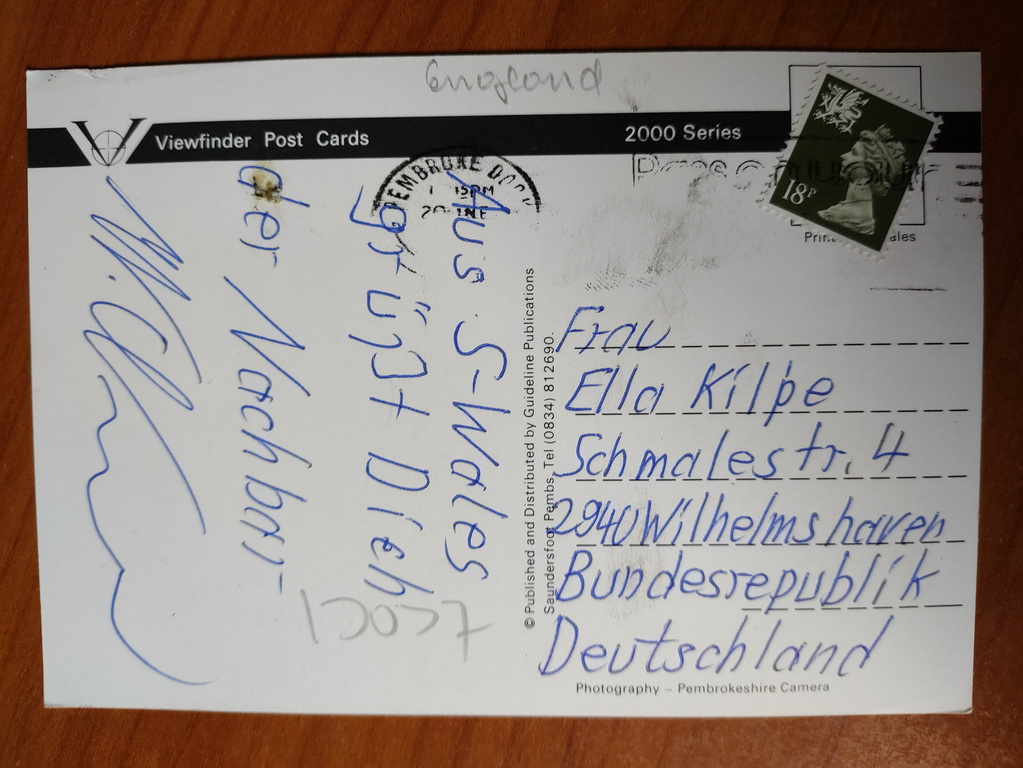 England
Viewfinder Post Cards
2000 Series
PEMBROKE DOCK
18P
Aus S-Wales
grüßt Dich
der Nachbar
© Published and Distributed by Guideline Publications
Saundersfoot Pembs. Tel (0834) 812690.
Frau
Ella Kilpe
Schmalestr. 4
2940 Wilhelmshaven
Bundesrepublik
Deutschland
Photography – Pembrokeshire Camera